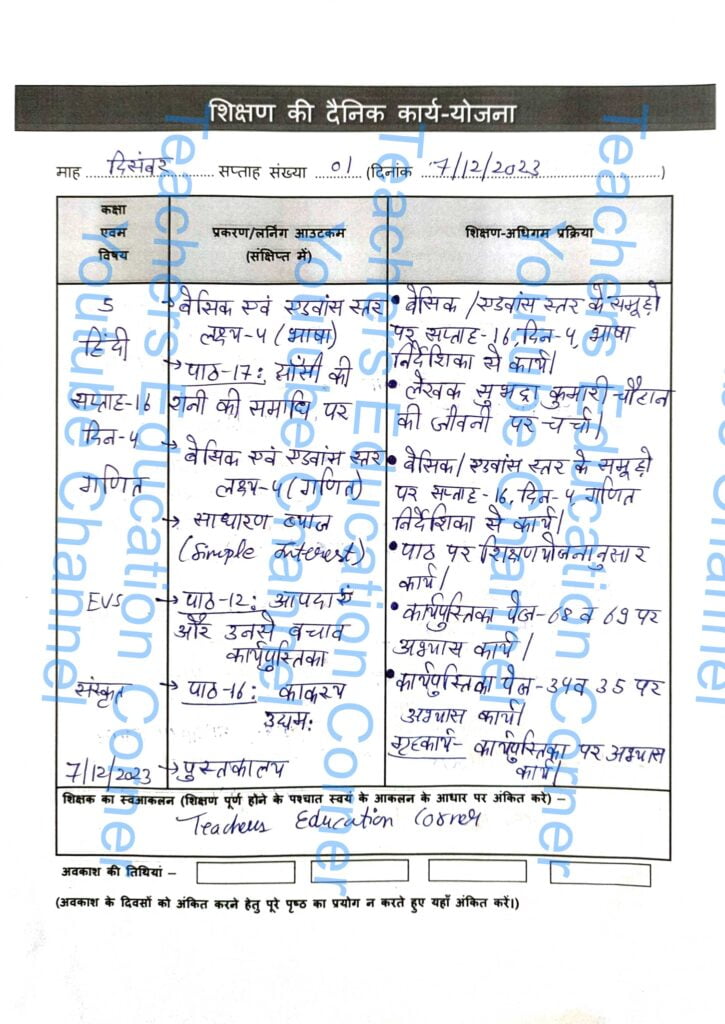 शिक्षण की दैनिक कार्य-योजना
माह दिसंबर सप्ताह संख्या 01 (दिनांक 7/12/2023)
कक्षा
एवम
विषय
प्रकरण/लर्निग आउटकम
(संक्षिप्त में)
शिक्षण-अधिगम प्रक्रिया
5
हिंदी
सप्ताह-16
दिन-4
→ बेसिक एवं एडवांस स्तर
लक्ष्य-4 (भाषा)
→ पाठ-17: झाँसी की
रानी की समाधि पर
• बेसिक/एडवांस स्तर के समूहों
पर सप्ताह-16, दिन-4, भाषा
निर्देशिका से कार्य।
• लेखक सुभद्रा कुमारी चौहान
की जीवनी पर चर्चा।
गणित
→ बेसिक एवं एडवांस स्तर
लक्ष्य-4 (गणित)
→ साधारण ब्याज
(Simple interest)
• बेसिक/एडवांस स्तर के समूहों
पर सप्ताह-16, दिन-4, गणित
निर्देशिका से कार्य।
• पाठ पर शिक्षणयोजनानुसार
कार्य।
EVS
→ पाठ-12: आपदाएं
और उनसे बचाव
कार्यपुस्तिका
• कार्यपुस्तिका पेज-68 व 69 पर
अभ्यास कार्य।
संस्कृत
→ पाठ-16: काकस्य
उद्यम:
• कार्यपुस्तिका पेज-34 व 35 पर
अभ्यास कार्य।
गृहकार्य- कार्यपुस्तिका पर अभ्यास
कार्य।
7/12/2023 → पुस्तकालय
शिक्षक का स्वआकलन (शिक्षण पूर्ण होने के पश्चात स्वयं के आकलन के आधार पर अंकित करे) –
Teachers Education Corner
अवकाश की तिथियां –
(अवकाश के दिवसों को अंकित करने हेतु पूरे पृष्ठ का प्रयोग न करते हुए यहाँ अंकित करें।)
Teachers Education Corner
Youtube Channel
Teachers Education Corner
Youtube Channel
Teachers Education Corner
Youtube Channel